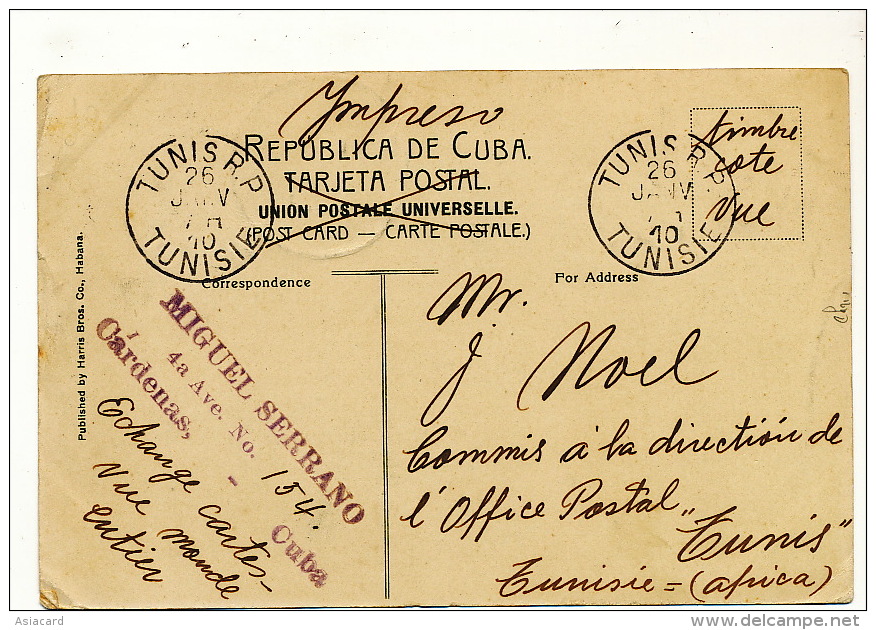 Impreso
REPÚBLICA DE CUBA.
TARJETA POSTAL.
UNION POSTALE UNIVERSELLE.
(POST CARD — CARTE POSTALE.)
TUNIS R.P.
26
JANV
10
TUNISIE
TUNIS R.P.
26
JANV
10
TUNISIE
timbre
cote
vue
Correspondence
For Address
Published by Harris Bros. Co., Habana.
MIGUEL SERRANO
4a Ave. No. 154.
Cárdenas, - Cuba
Echange cartes-
vue monde
entier
Mr.
J. Noel
Commis á la direction de
l'Office Postal „
"Tunis"
Tunisie = (Africa)
Asiacard
delcampe.net